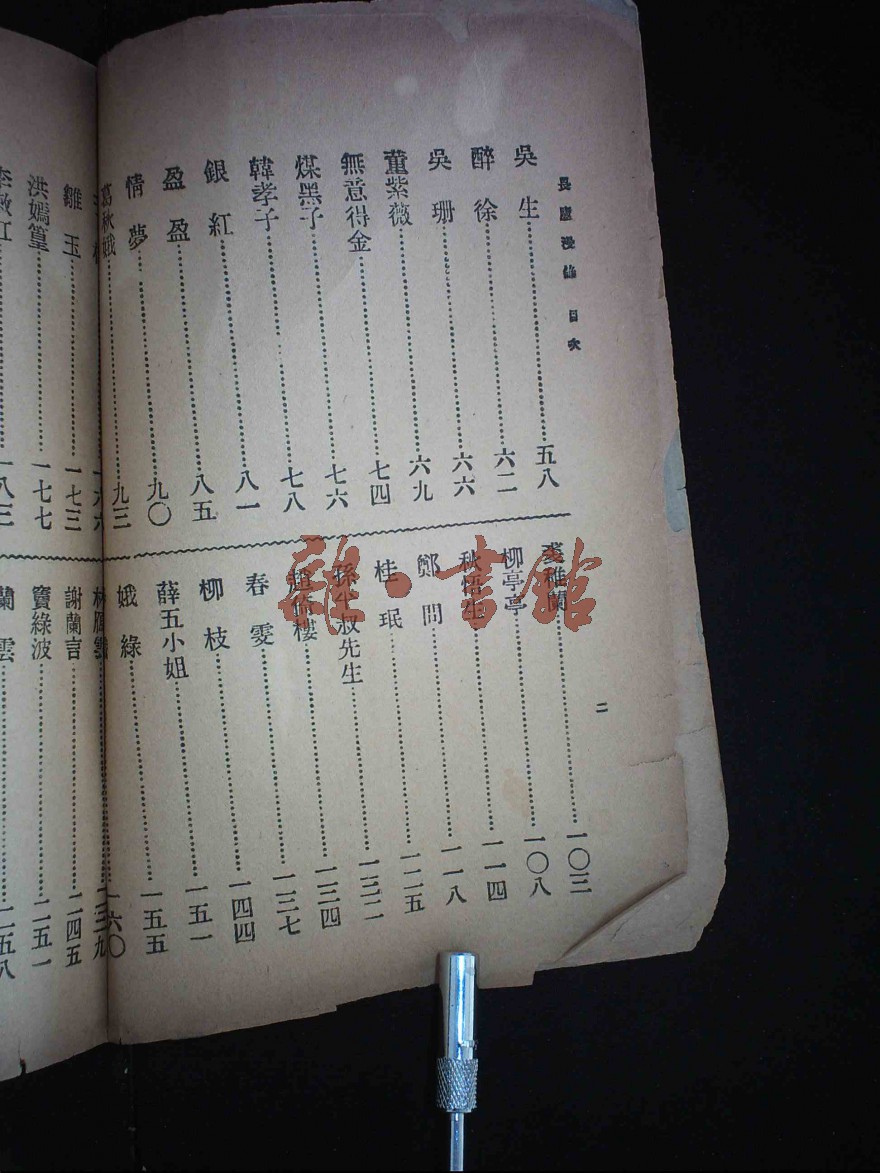 目次
吳生…五八
醉徐…六二
吳珊…六六
董紫薇…六九
無意得金…七四
煤黑子…七六
韓孝子…七八
銀紅…八一
盈盈…八五
情夢…九〇
葛秋娥…九三
裘稚蘭…一〇三
柳亭亭…一〇八
秋悟生…一一四
鄭問…一一八
桂珉…一二五
孫半叔先生…一三二
趙倚樓…一三四
春雯…一三七
柳枝…一四四
薛五小姐…一五一
娥綠…一五五
一六〇
二
一六六
雛玉…一七三
洪嫣篁…一七七
一八三
謝蘭言…二四五
竇綠波…二五一
蘭雲…二五八
雜·書館